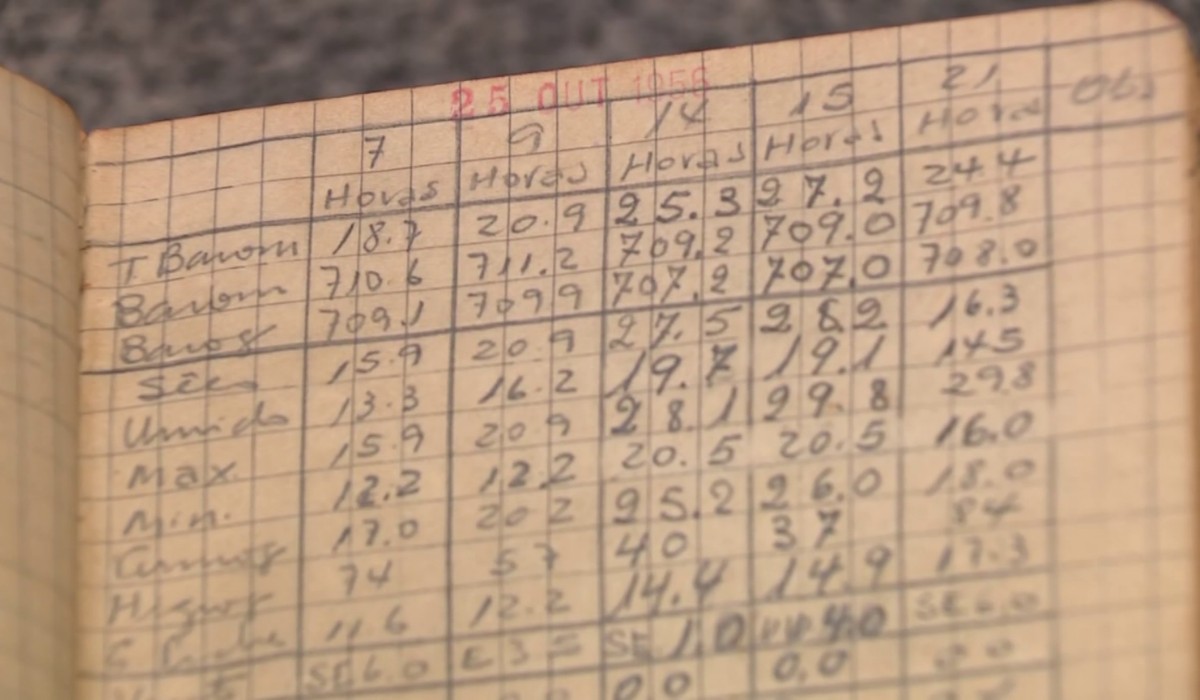 25 OUT 1956
7 9 14 15 21 Obs
Horas Horas Horas Horas Horas
T Barom 18.7 20.9 25.3 27.2 24.4
Barom 710.6 711.2 709.2 709.0 709.8
709.1 7099 707.2 707.0 708.0
Sêco 15.9 20.9 27.5 28.2 16.3
Umido 13.3 16.2 19.7 19.1 145
Max. 15.9 209 28.1 29.8 298
Min. 12.2 12.2 20.5 20.5 16.0
17.0 202 25.2 26.0 18.0
74 57 40 37 84
11.6 12.2 14.4 14.9 17.3
SE6.0 E 3 5 SE 1.0 4.0 SE 6.0
00 0.0 00